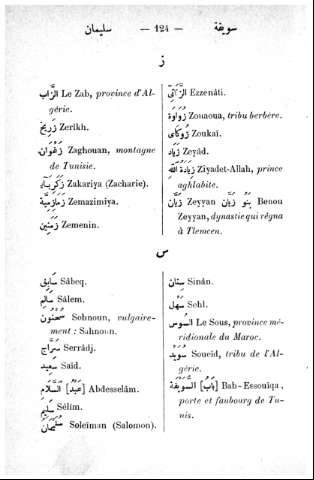 سوبغة — 124 — سليمان
ز
الزَّاب Le Zab, province d'Al-
gérie.
زَرِيخ Zerikh.
زَغْوَان Zaghouan, montagne
de Tunisie.
زَكَرِيَّاء Zakariya (Zacharie).
زَمَازِمِيَّة Zemazimiya.
زَمَنِين Zemenin.
الزَّنَاتِي Ezzenâti.
زَوَاوَة Zouaoua, tribu berbère.
زُوكَاي Zoukaï.
زِيَاد Zeyâd.
زِيَادَة الله Ziyadet-Allah, prince
aghlabite.
زَيَّان Zeyyan بَنُو زَيَّان Benou
Zeyyan, dynastie qui régna
à Tlemcen.
س
سَابِق Sâbeq.
سَالِم Sâlem.
سَحْنُون Sohnoun, vulgaire-
ment : Sahnoun.
سَرَّاج Serrâdj.
سَعِيد Saïd.
[عَبْد] السَّلَام Abdesselâm.
سَلِيم Sélim.
سُلَيْمَان Soleïman (Salomon).
سِنَان Sinân.
سَهْل Sehl.
السُّوس Le Sous, province mé-
ridionale du Maroc.
سُوَيْد Soueïd, tribu de l'Al-
gérie.
[بَاب] السُّوَيْقَة Bab-Essouïqa,
porte et faubourg de Tu-
nis.